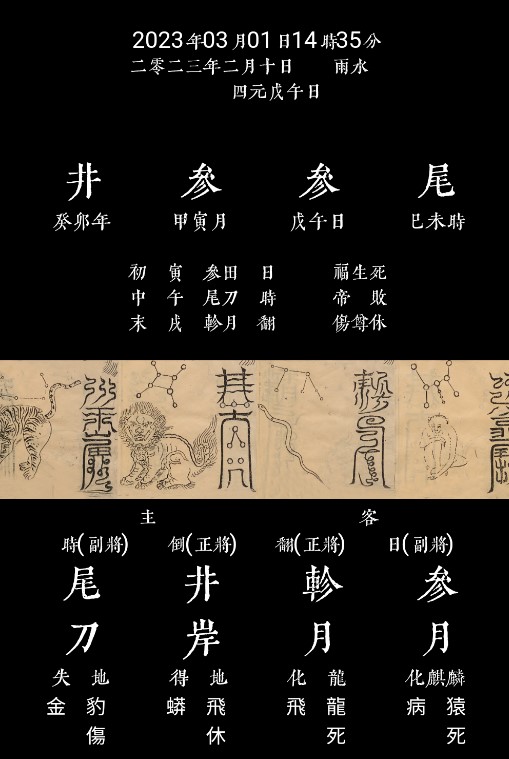 2023年03月01日14時35分
二零二三年二月十日 雨水
四元戊午日
井 參 參 尾
癸卯年 甲寅月 戊午日 己未時
初 寅 參田 日 福生死
中 午 尾刀 時 帝 敗
末 戌 軫月 翻 傷尊休
主 客
時(副將) 倒(正將) 翻(正將) 日(副將)
尾 井 軫 參
刀 岸 月 月
失 地 得 地 化 龍 化麒麟
金 豹 蟒 飛 飛 龍 病 猿
傷 休 死 死